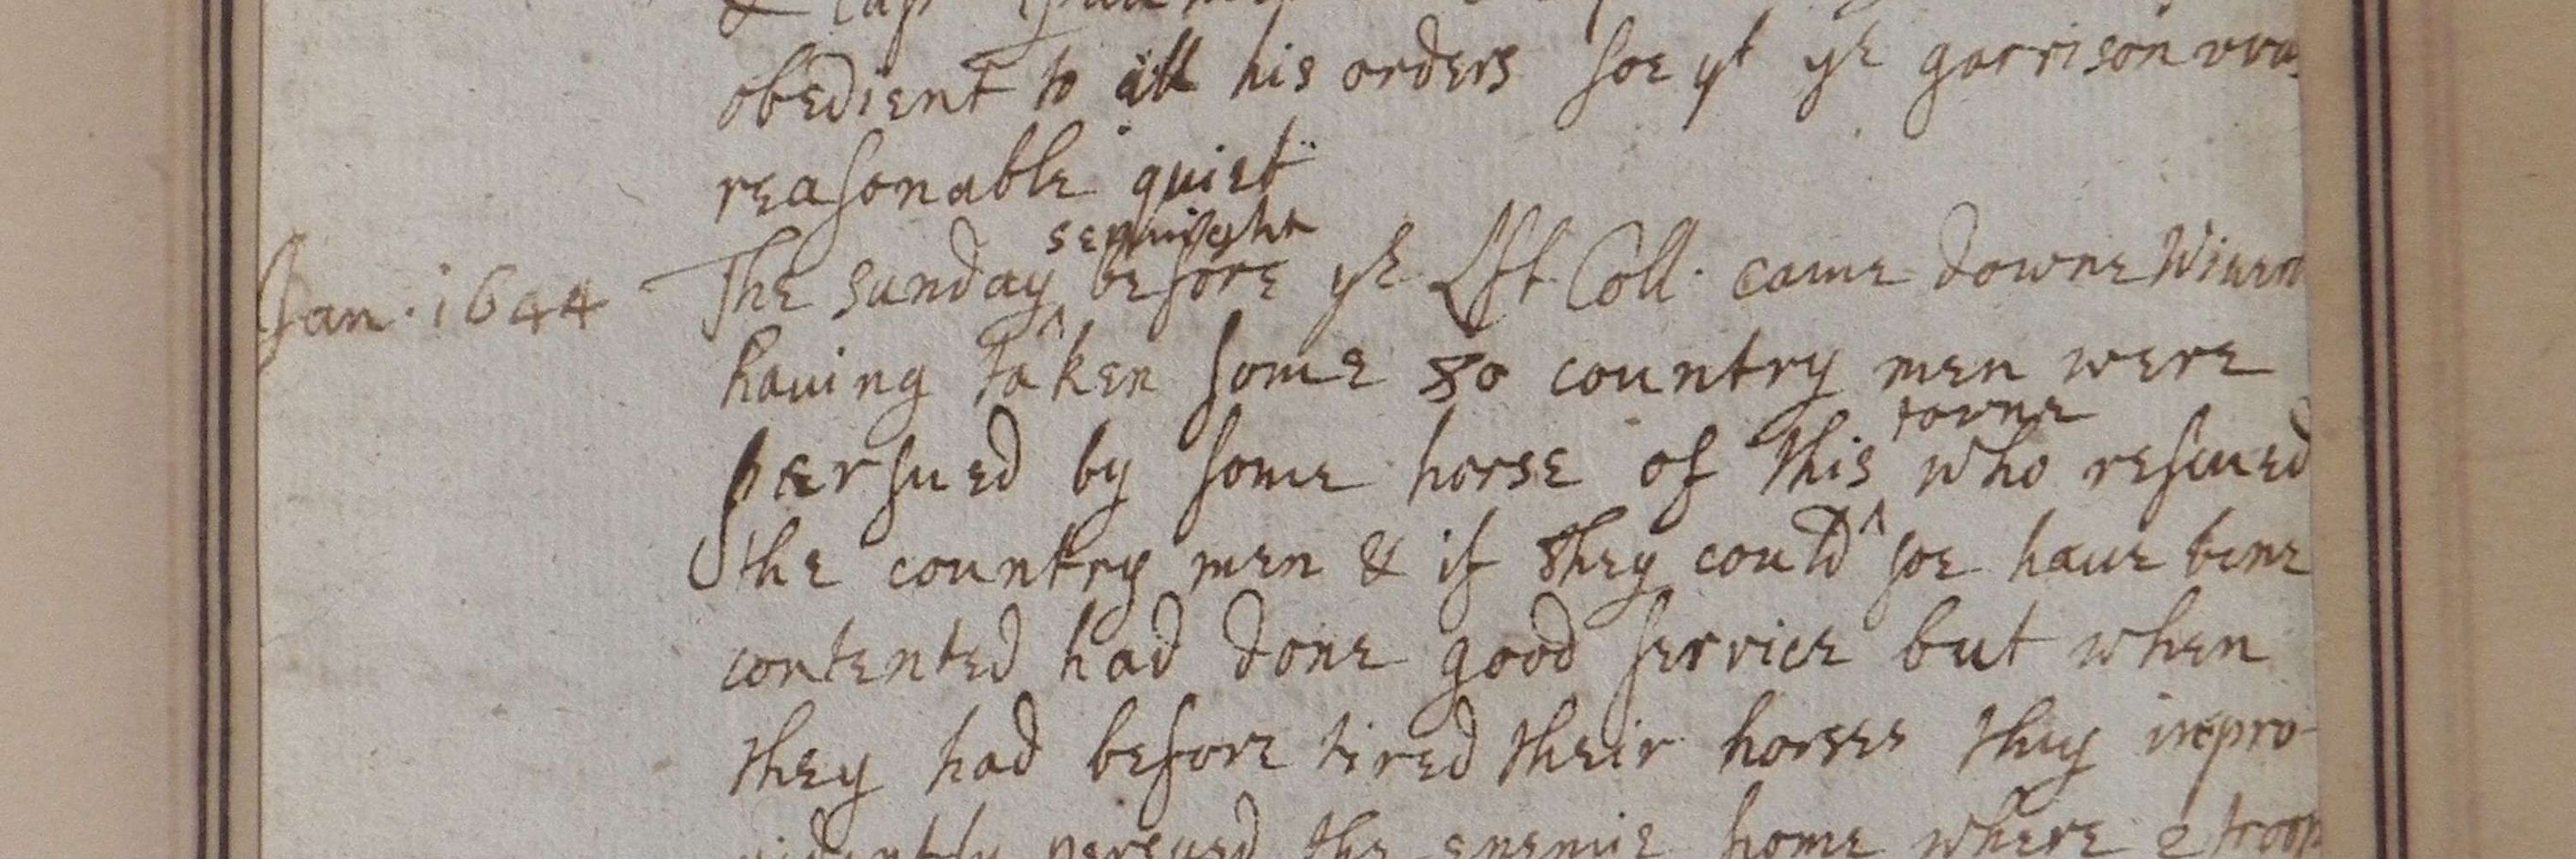 obedient to all his orders soe yt ye garrison was
reasonable quiet
sennight
Jan. 1644 The sunday before ye Lft Coll. came downe
having taken some 80 country men were
towne
persued by some horse of this who rescued
the country men & if they could soe haue bene
contented had done good service but when
they had before tired their horses they inpro-
vidently persued the enemie home where 2 troop